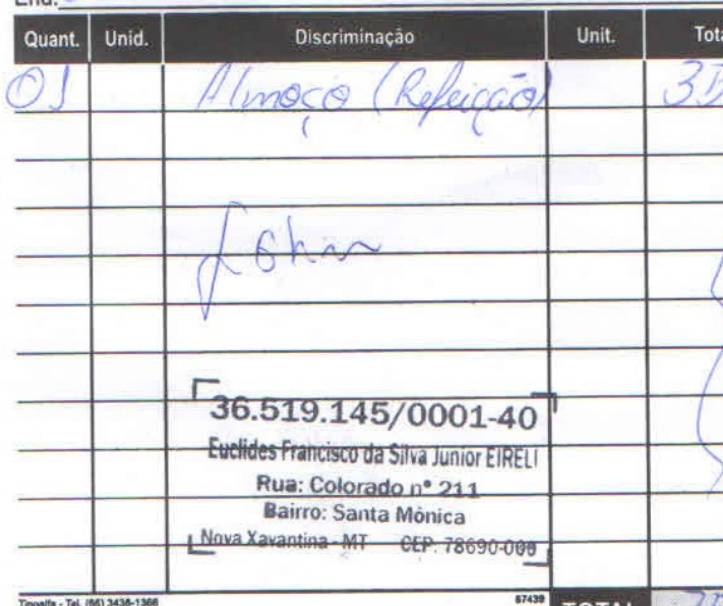 End:
Quant. Unid. Discriminação Unit. Tota
01 Almoço (Refeição)
36.519.145/0001-40
Euclides Francisco da Silva Junior EIRELI
Rua: Colorado nº 211
Bairro: Santa Mônica
Nova Xavantina - MT CEP: 78690-000
Tipoalfa - Tel. (66) 3438-1366 67439 TOTAL